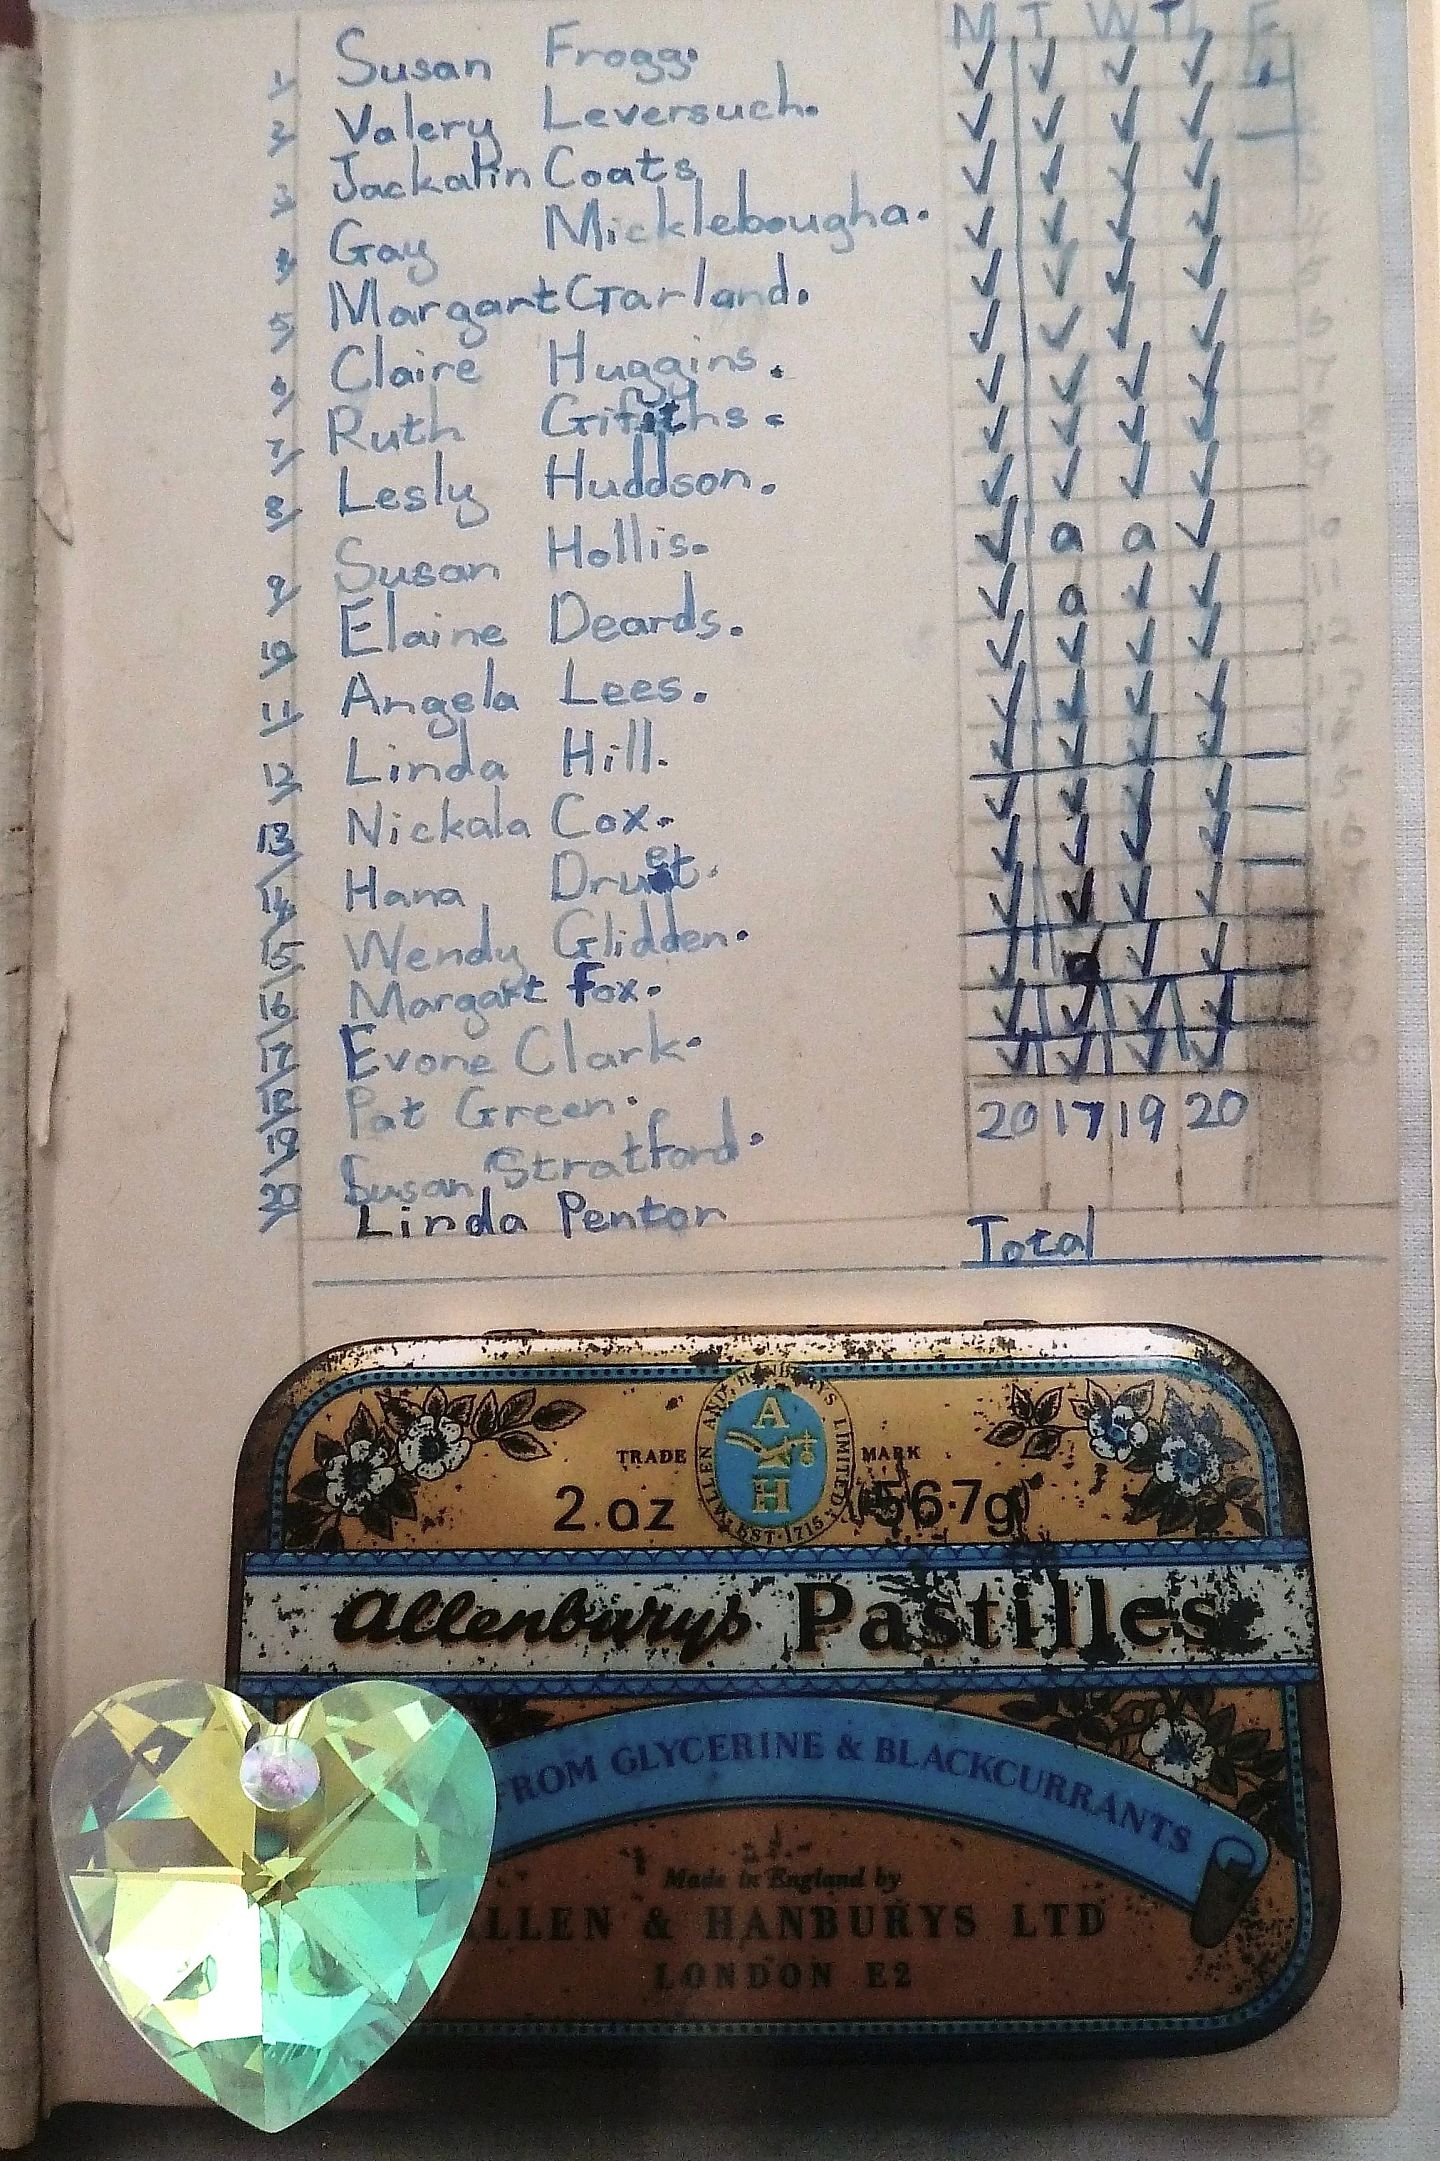 M T W Th F
1 Susan Frogg. ✓ ✓ ✓ ✓
2 Valery Leversuch. ✓ ✓ ✓ ✓
3 Jackalin Coats ✓ ✓ ✓ ✓
4 Gay Mickleбougha. ✓ ✓ ✓ ✓
5 Margart Garland. ✓ ✓ ✓ ✓
6 Claire Huggins. ✓ ✓ ✓ ✓
7 Ruth Gifiths. ✓ ✓ ✓ ✓
8 Lesly Huddson. ✓ ✓ ✓ ✓
9 Susan Hollis. ✓ a a ✓
10 Elaine Deards. ✓ a ✓ ✓
11 Angela Lees. ✓ ✓ ✓ ✓
12 Linda Hill. ✓ ✓ ✓ ✓
13 Nickala Cox. ✓ ✓ ✓ ✓
14 Hana Druet. ✓ ✓ ✓ ✓
15 Wendy Glidden. ✓ ✓ ✓ ✓
16 Margart Fox. ✓ a ✓ ✓
17 Evone Clark. ✓ ✓ ✓ ✓
18 Pat Green. ✓ ✓ ✓ ✓
19 Susan Stratford.
20 Linda Pentor
20 17 19 20
Total
ALLEN AND HANBURYS LIMITED
A
TRADE MARK
H
EST. 1715
2 oz (56·7g)
Allenburys Pastilles
FROM GLYCERINE & BLACKCURRANTS
Made in England by
ALLEN & HANBURYS LTD
LONDON E2